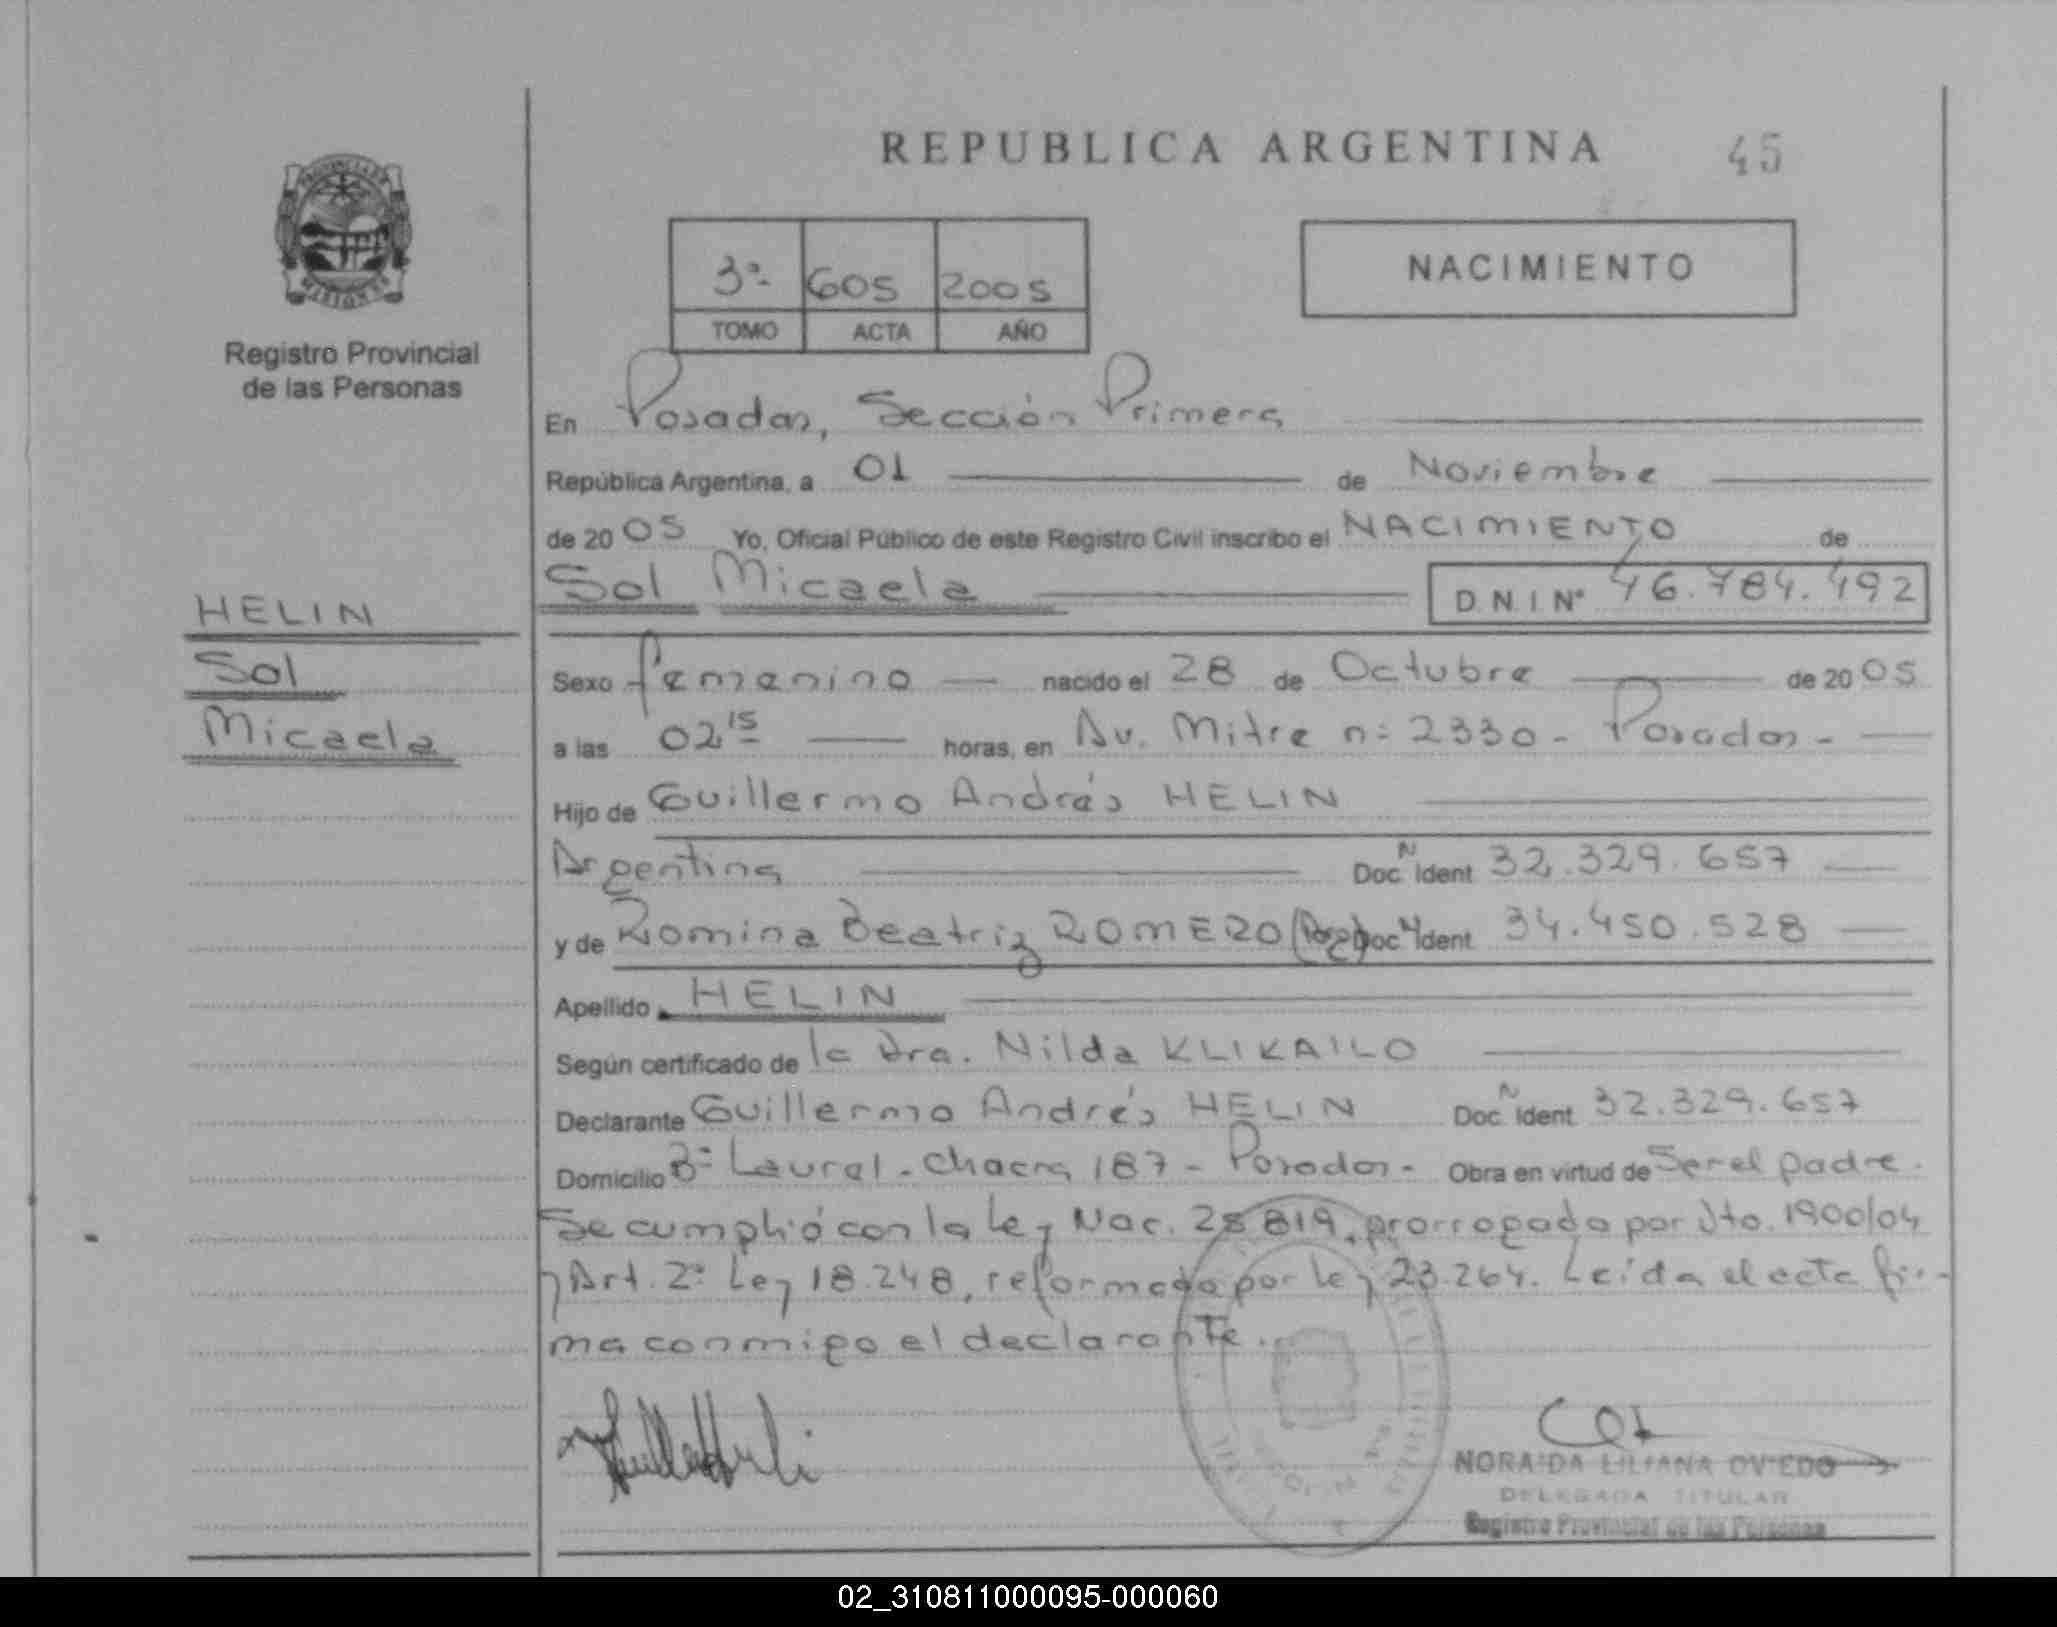 REPUBLICA ARGENTINA 45
PROVINCIA DE
MISIONES
Registro Provincial
de las Personas
3º 605 2005
TOMO ACTA AÑO
NACIMIENTO
En Posadas, Sección Primera
República Argentina, a 01 de Noviembre
de 2005 Yo, Oficial Público de este Registro Civil inscribo el NACIMIENTO de
Sol Micaela D.N.I Nº 46.784.492
HELIN
Sol
Micaela
Sexo femenino nacido el 28 de Octubre de 2005
a las 02 15 horas, en Av. Mitre nº 2330 - Posadas -
Hijo de Guillermo Andrés HELIN
Argentina Doc. N Ident 32.329.657
y de Romina Beatriz ROMERO (Arg) Doc N Ident 34.450.528
Apellido HELIN
Según certificado de la Dra. Nilda KLIKAILO
Declarante Guillermo Andrés HELIN Doc. N Ident 32.329.657
Domicilio Bº Laurel - Chacra 187 - Posadas - Obra en virtud de Ser el padre.
Se cumplió con la Ley Nac. 25819, prorrogada por Dto. 1900/04
y Art. 2º Ley 18.248, reformada por Ley 23.264. Leída el acta fir-
ma conmigo el declarante.
NORAIDA LILIANA OVIEDO
DELEGADA TITULAR
Registro Provincial de las Personas
02_310811000095-000060